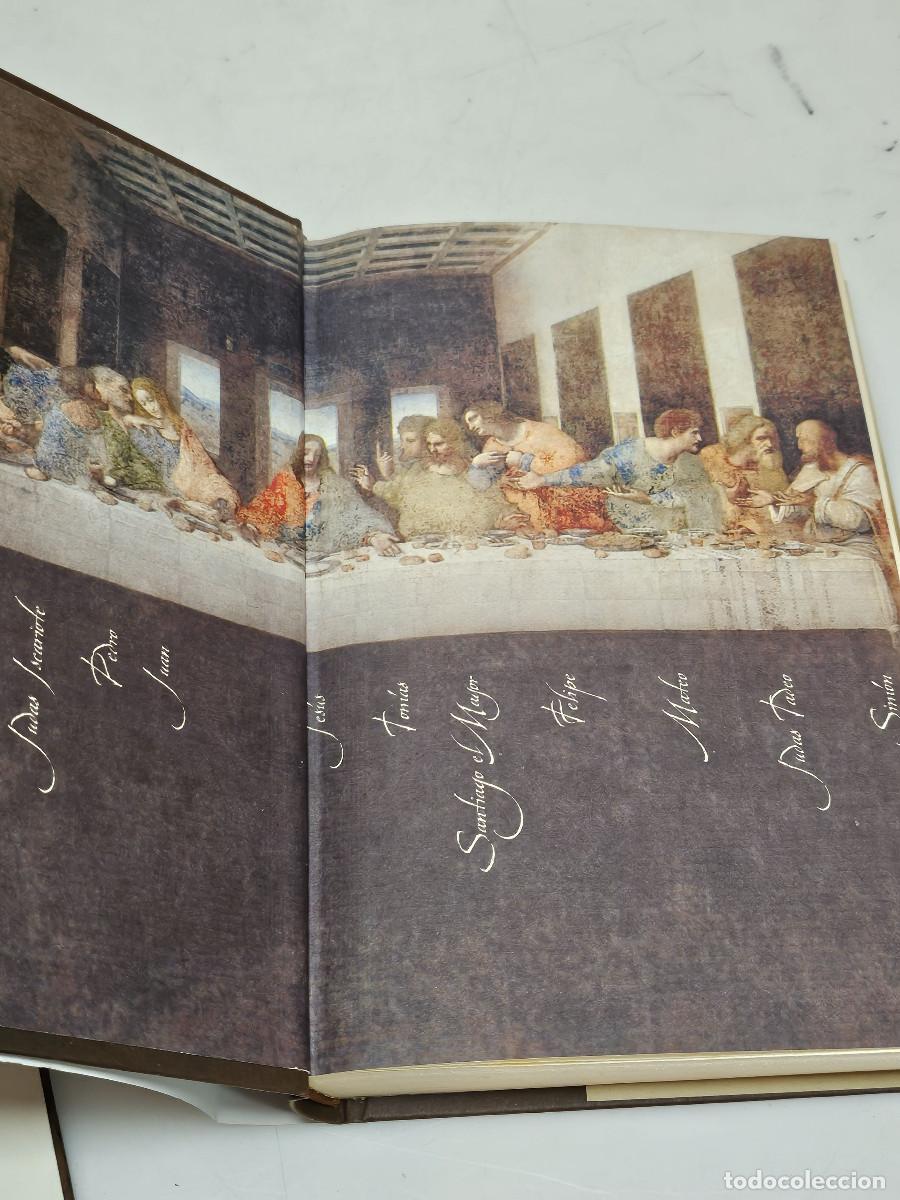 Judas Iscariote
Pedro
Juan
Jesús
Tomás
Santiago el Mayor
Felipe
Mateo
Judas Tadeo
Simón
todocoleccion